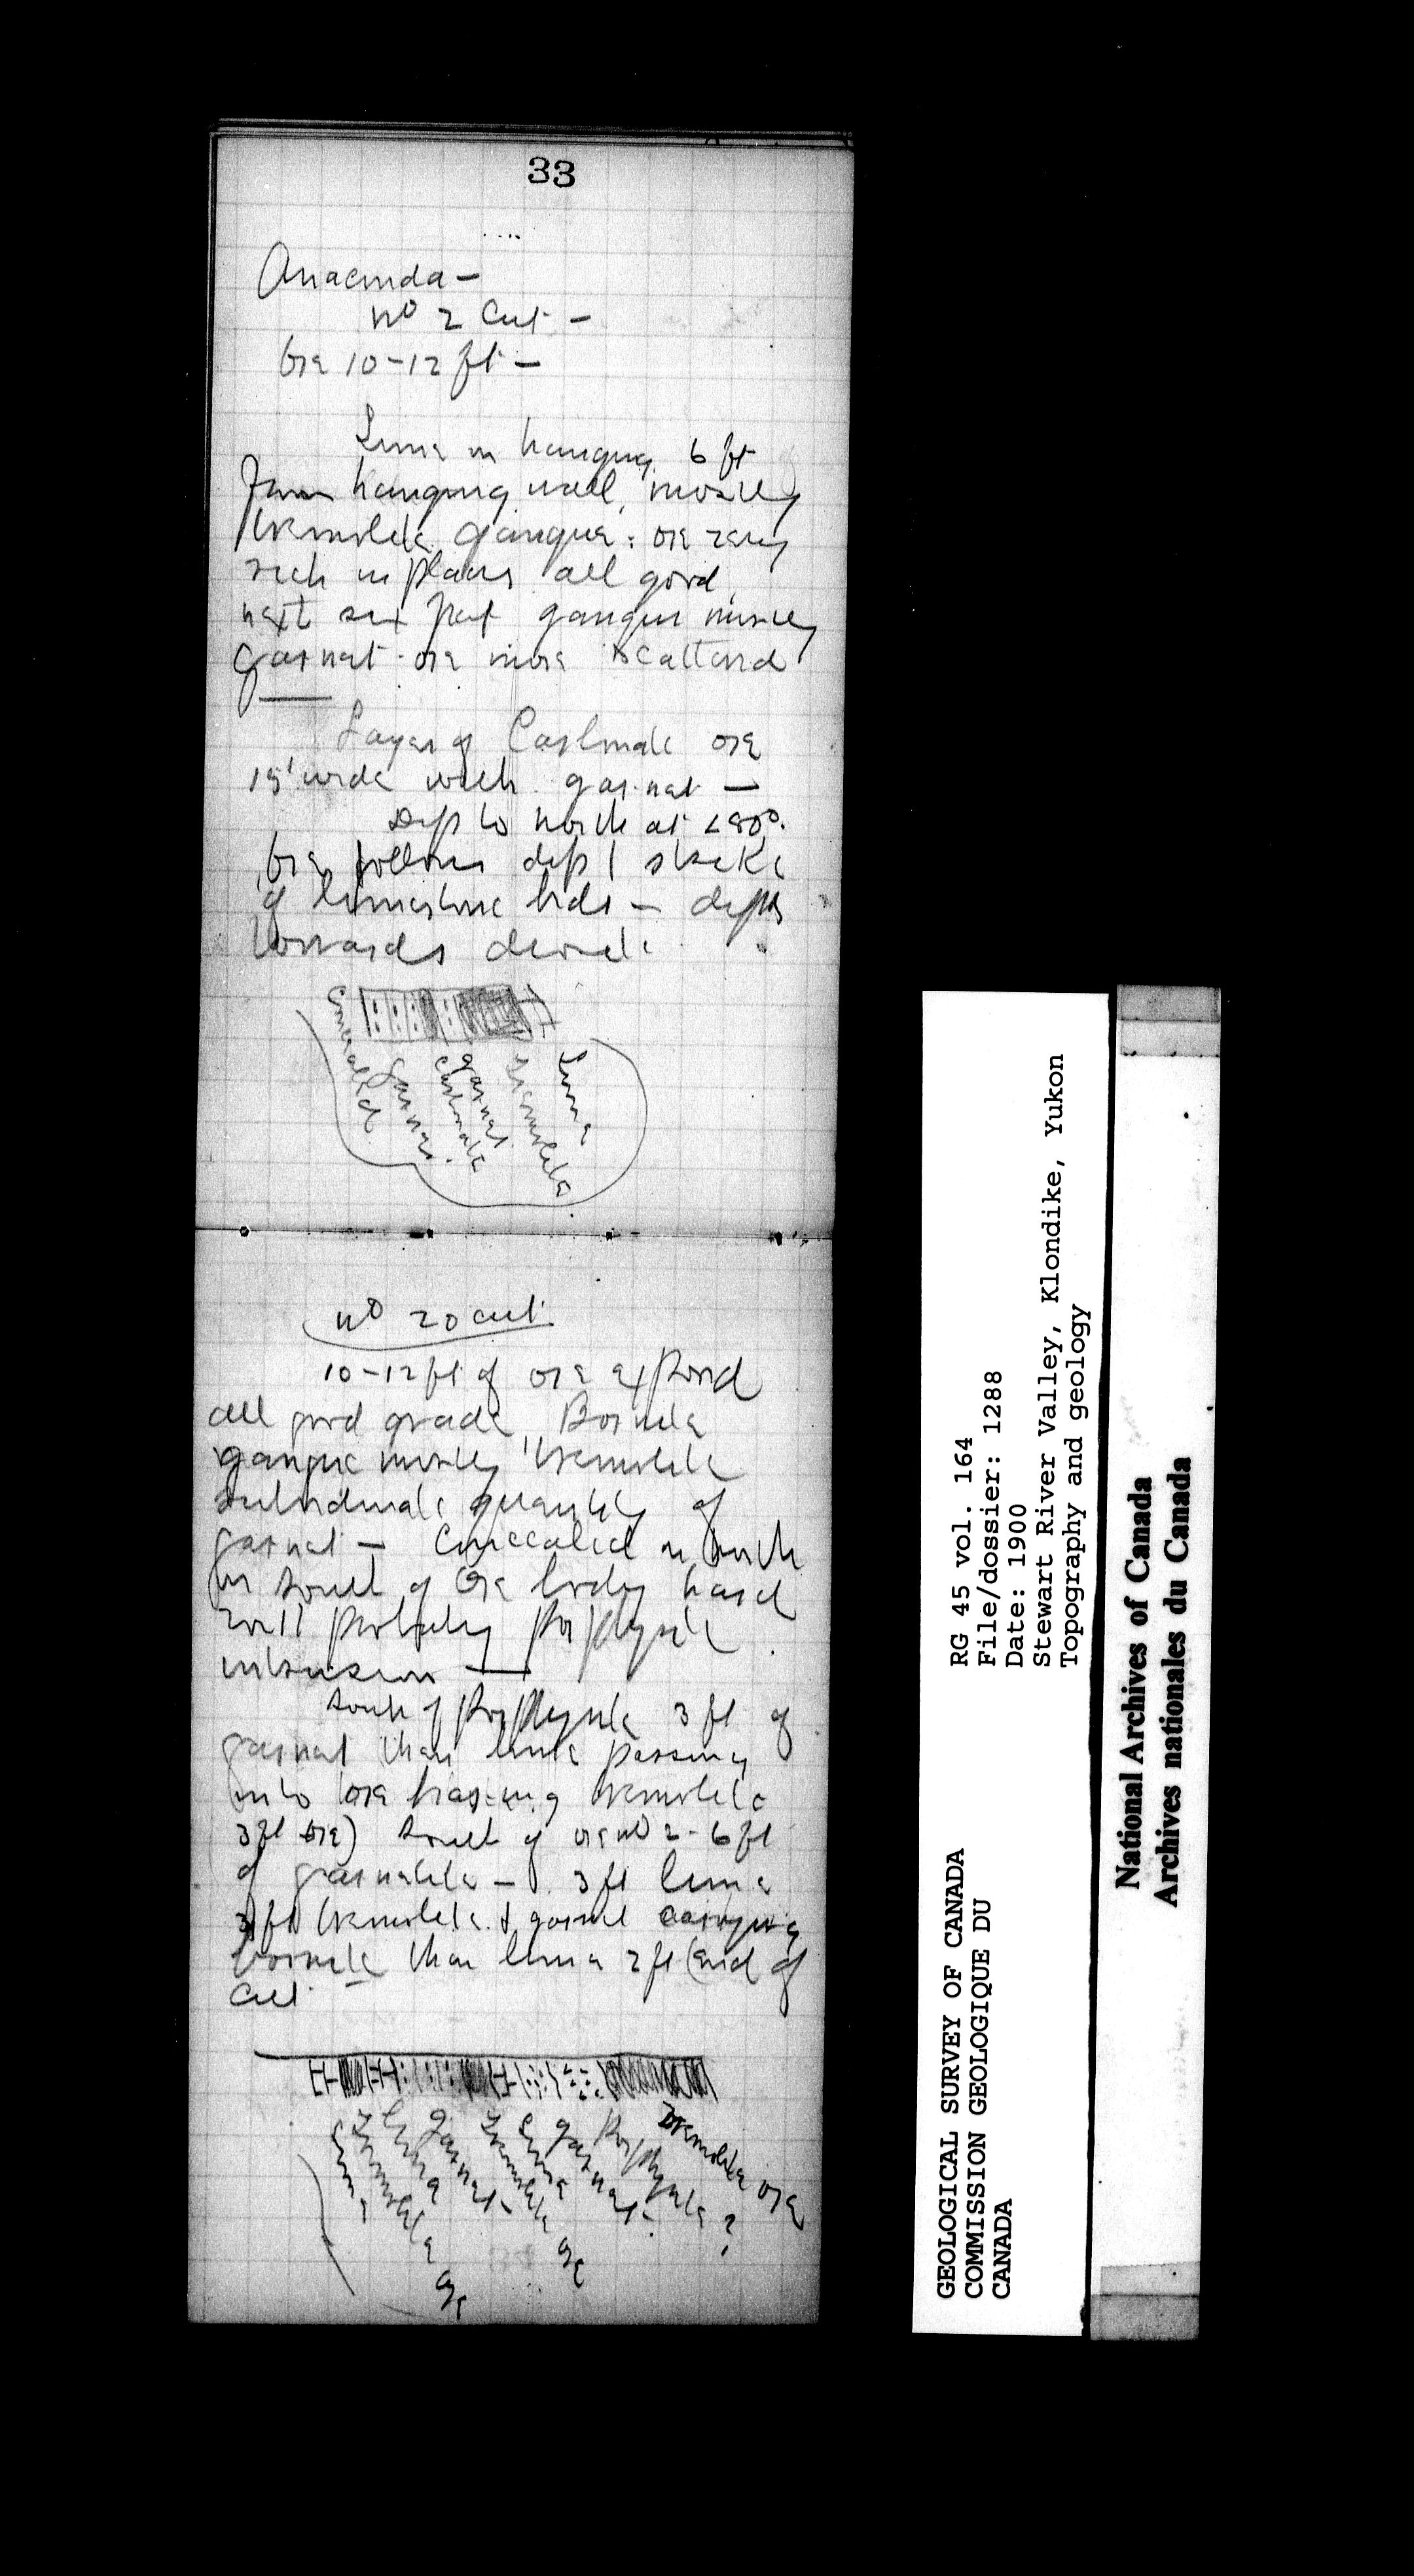 33
Anaconda —
No 2 Cut —
Ore 10-12 ft —
Lime in hanging 6 ft
from hanging wall, mostly
tremolite gangue: ore very
rich in places all good
next six feet gangue mostly
Garnet ore more scattered
Layer of Carbonate ore
15' wide with garnet —
Dip to north at <80°.
Ore follows dip & strike
of limestone beds — dips
towards diorite
Concealed
Garnet.
garnet
carbonate
tremolite
Lime
No 20 cut
10-12 ft of ore exposed
all good grade, Bornite
gangue mostly tremolite
subordinate quantity of
garnet — Concealed on north
on south of Ore body hard
wall probably porphyrite
intrusion —
South of Porphyrite 3 ft of
garnet then lime passing
into ore bearing tremolite
3 ft ore) South of ore No 2 - 6 ft
of garnetite — 3 ft lime
3 ft tremolite & garnet carrying
bornite then lime 2 ft (end of
cut
Lime
Tremolite ore
Lime
Garnet
Tremolite ore
Lime
garnet
Porphyrite ?
Tremolite ore
GEOLOGICAL SURVEY OF CANADA
COMMISSION GEOLOGIQUE DU
CANADA
RG 45 vol. 164
File/dossier: 1288
Date: 1900
Stewart River Valley, Klondike, Yukon
Topography and geology
National Archives of Canada
Archives nationales du Canada